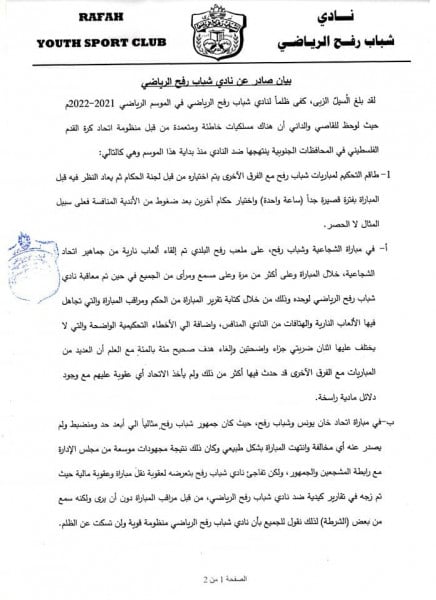 RAFAH
YOUTH SPORT CLUB
نــادي
شباب رفح الرياضي
بيان صادر عن نادي شباب رفح الرياضي
لقد بلغ الُسيلُ الزبى، كفى ظلماً لنادي شباب رفح الرياضي في الموسم الرياضي 2021-2022م
حيث لوحظ للقاصي والداني أن هناك مسلكيات خاطئة ومتعمدة من قبل منظومة اتحاد كرة القدم
الفلسطيني في المحافظات الجنوبية ينتهجها ضد النادي منذ بداية هذا الموسم وهي كالتالي:
1- طاقم التحكيم لمباريات شباب رفح مع الفرق الأخرى يتم اختياره من قبل لجنة الحكام ثم يعاد النظر فيه قبل
المباراة بفترة قصيرة جداً (ساعة واحدة) واختيار حكام آخرين بعد ضغوط من الأندية المنافسة فعلى سبيل
المثال لا الحصر.
أ- في مباراة الشجاعية وشباب رفح، على ملعب رفح البلدي تم إلقاء ألعاب نارية من جماهير اتحاد
الشجاعية، خلال المباراة وعلى أكثر من مرة وعلى مسمع ومرأى من الجميع في حين تم معاقبة نادي
شباب رفح الرياضي لوحده وذلك من خلال كتابة تقرير المباراة من الحكم ومراقب المباراة والتي تجاهل
فيها الألعاب النارية والهتافات من النادي المنافس، واضافة الي الأخطاء التحكيمية الواضحة والتي لا
يختلف عليها اثنان ضربتي جزاء واضحتين وإلغاء هدف صحيح مئة بالمئة مع العلم أن العديد من
المباريات مع الفرق الأخرى قد حدث فيها أكثر من ذلك ولم يأخذ الاتحاد أي عقوبة عليهم مع وجود
دلائل مادية راسخة.
ب- في مباراة اتحاد خان يونس وشباب رفح، حيث كان جمهور شباب رفح مثالياً الي أبعد حد ومنضبط ولم
يصدر عنه أي مخالفة وانتهت المباراة بشكل طبيعي وكان ذلك نتيجة مجهودات موسعة من مجلس الإدارة
مع رابطة المشجعين والجمهور، ولكن تفاجئ نادي شباب رفح بتعرضه لعقوبة نقل مباراة وعقوبة مالية حيث
تم زجه في تقارير كيدية ضد نادي شباب رفح الرياضي، من قبل مراقب المباراة دون أن يرى ولكنه سمع
من بعض (الشرطة) لذلك نقول للجميع بأن نادي شباب رفح الرياضي منظومة قوية ولن تسكت عن الظلم.
الصفحة 1 من 2